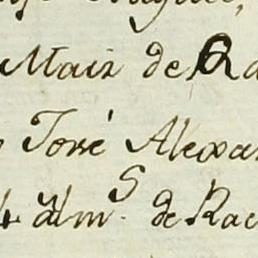 Maiz de Ra
José Alexa
4 alm.s de Rac